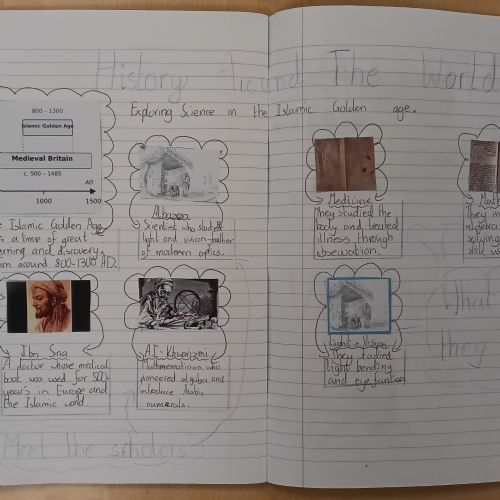 History Around The World
Exploring Science in the Islamic Golden age.
800 - 1300
Islamic Golden Age
Medieval Britain
c. 500 - 1485
AD
1000
1500
Islamic Golden Age
is a time of great
and discovery.
around 800-1300 AD.
Alhazen
Scientist who studied
light and vision-father
of modern optics.
Ibn Sina
A doctor whose medical
book was used for 500
years in Europe and
the Islamic world.
Al-Khwarizmi
Mathematician who
pioneered algebra and
introduce Arabic
numerals.
Meet the scholers
Medicine
They studied the
body and treated
illness through
observation.
Math
They in
algebra
solving
still us
Light + Vision
They studied
light bending
and eye funtion
What
they